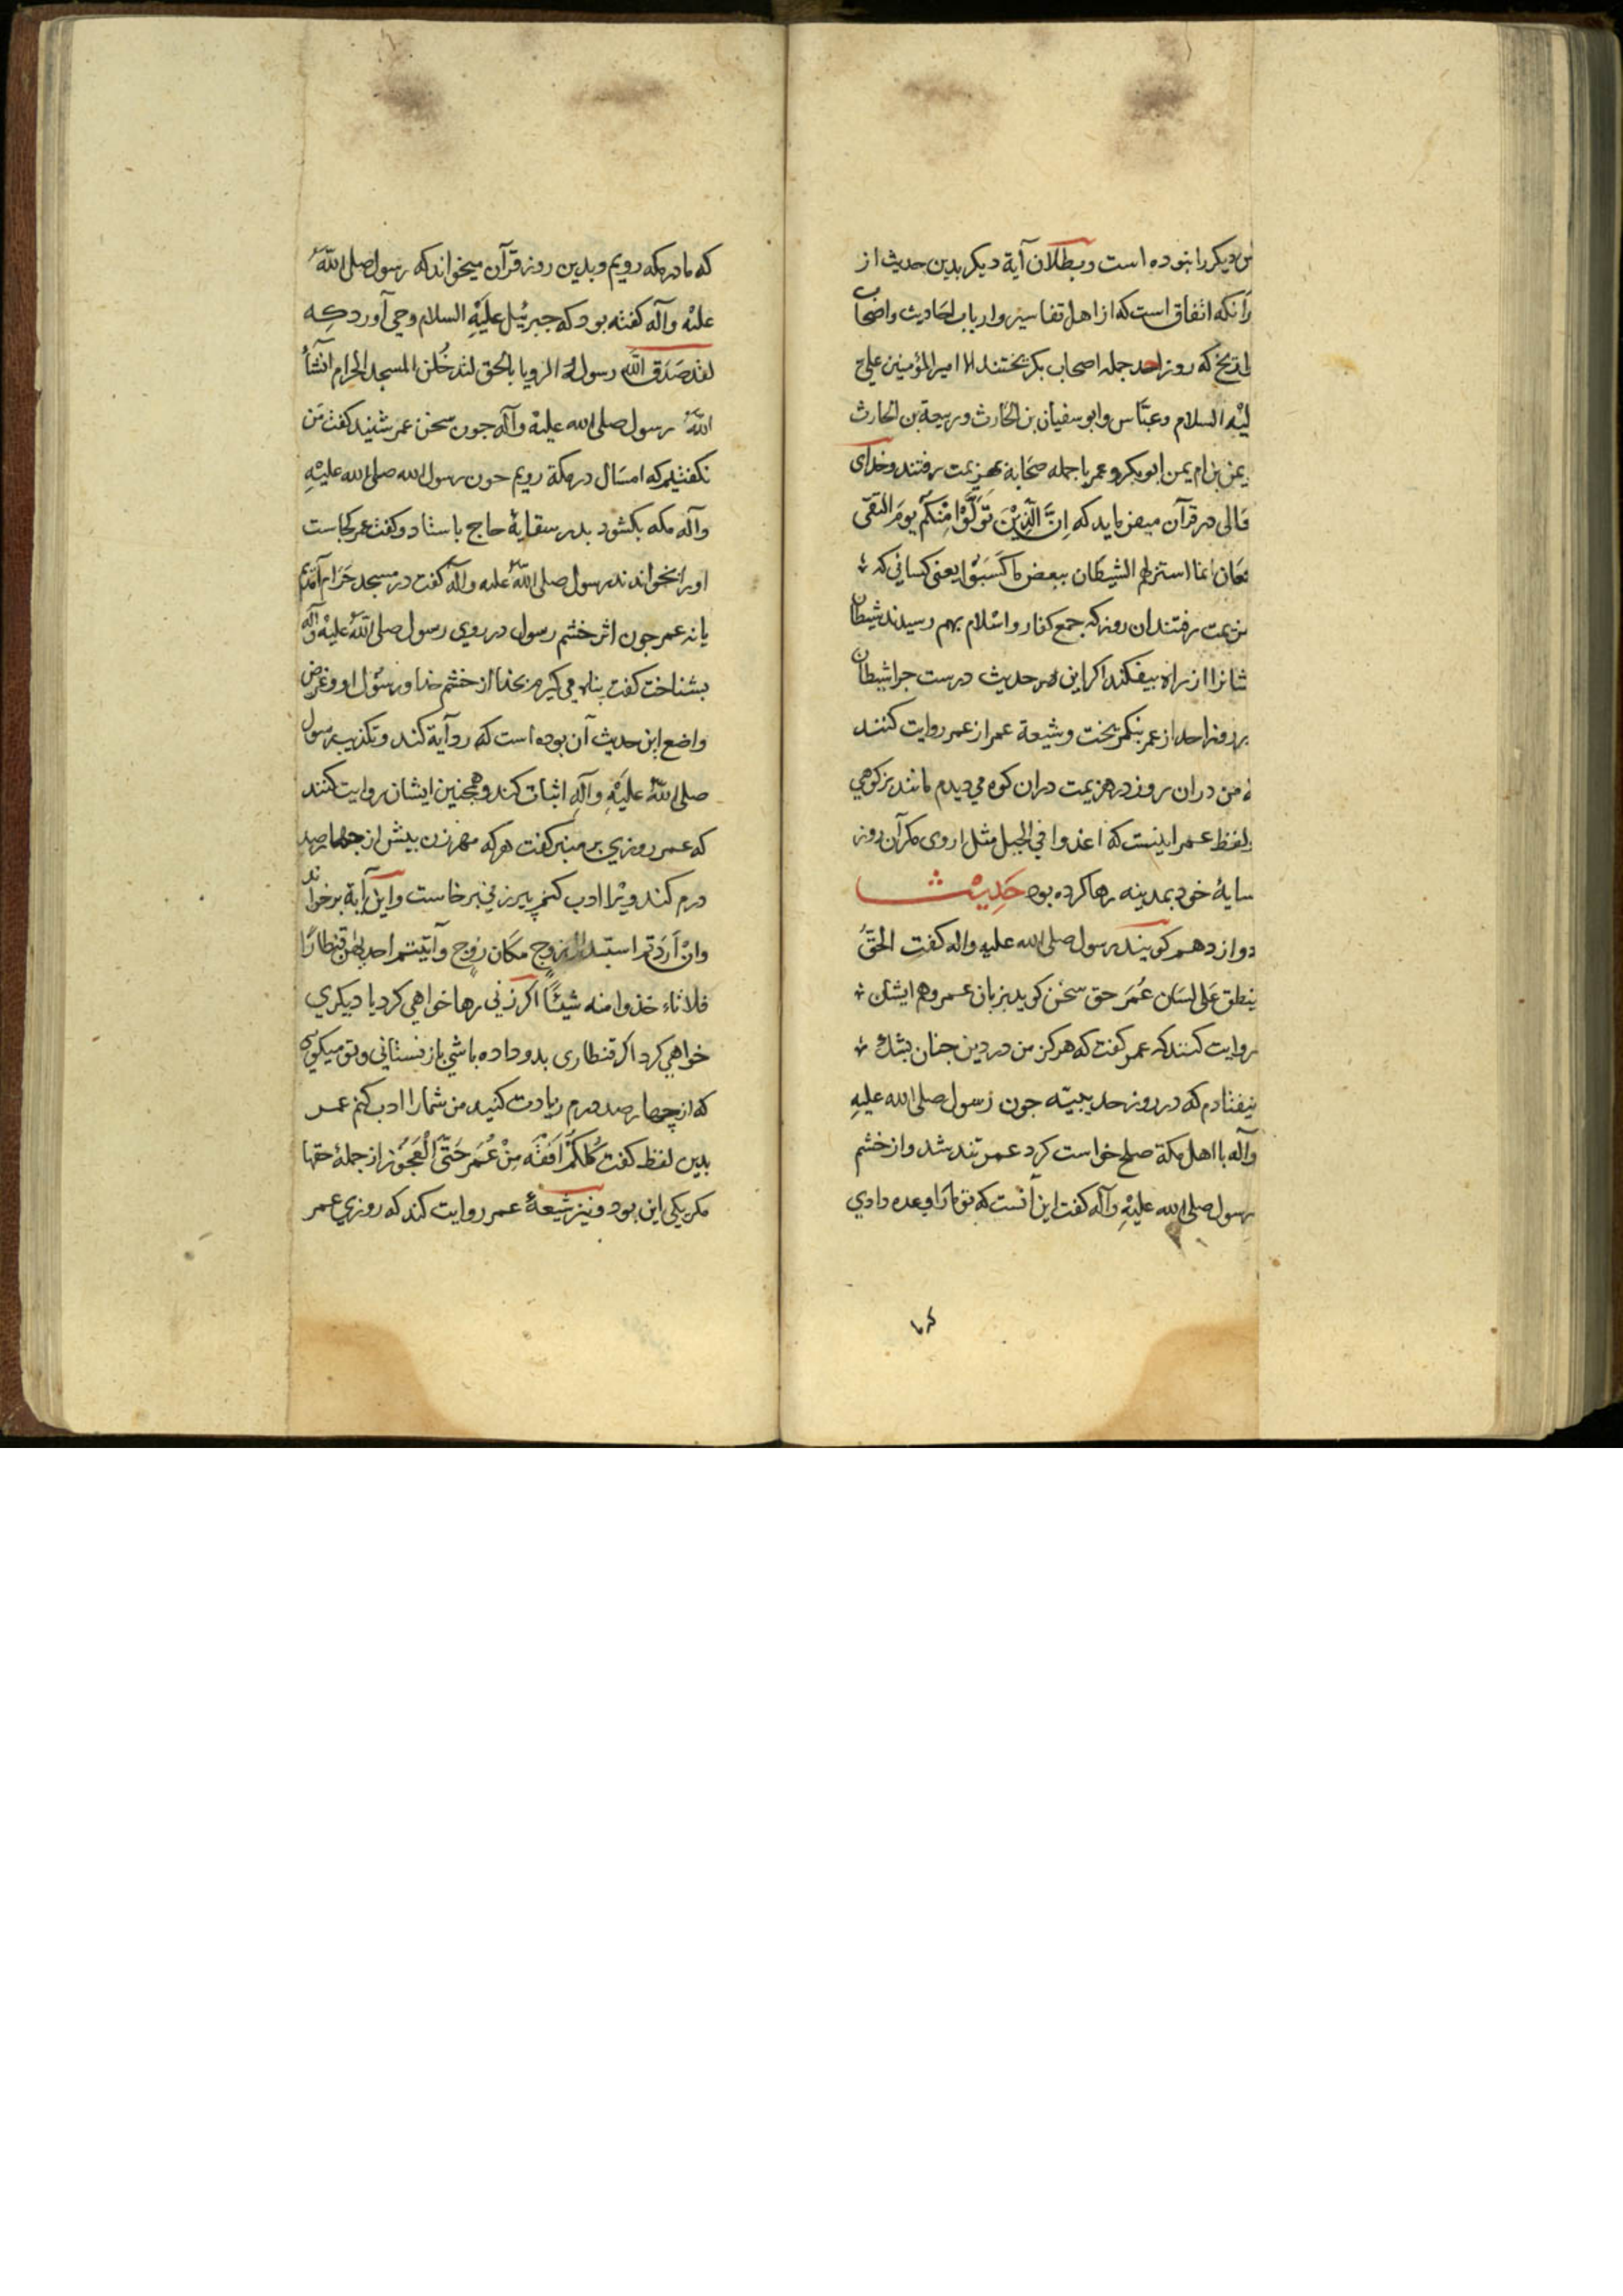 دیکر را نبوده است و بطلان آیة دیکر بدین حدیث از
رانکه اتفاق است که از اهل تفاسیر و ارباب احادیث و اصحاب
که روز احد جمله اصحاب بکریختند الا امیر المؤمنین علی
السلام و عباس و ابو سفیان بن الحارث و ربیعة بن الحارث
یمن بن ام یمن ابو بکر و عمر با جمله صحابه بهزیمت رفتند و خدای
در قرآن میفرماید که اِنَّ الَّذِیْنَ تَوَلَّوْا مِنْکُم یومَ التقی
معان انما استزلهم الشیطان ببعض ما کَسَبُوْا یعنی کسانی که
رفتند ان روز که جمع کفار و اسلام بهم رسیدند شیطان
شانرا از راه بیفکند اکر این هر حدیث درست چرا شیطان
روز احد از عمر بنکریخت و شیعة عمر از عمر روایت کنند
من دران روز در هزیمت دران کوه می دیدم مانند بز کوهی
لفظ عمر اینست که اغدوا فی الجبل مثل اروی مکر آن روز
سایهٔ خود بمدینه رها کرده بود حَدِیْث
دوازدهم کویند رسول صلی الله علیه و اله کفت الحقُّ
ینطق عَلی لِسَان عُمَر حق سخن کوید بزبان عمر و هم ایشان
روایت کنند که عمر کفت که هرکز من در دین چنان بشک
نیفتادم که در روز حدیبیه چون رسول صلی الله علیهِ
وآله با اهل مکة صلح خواست کرد عمر تند شد و از خشم
رسول صلی الله علیْهِ وآله کفت این آنست که تو ما را وعده دادی
که ما
که ما در مکه رویم و بدین روز قرآن میخواند که رسول صلی اللهُ
علیْه وآله کفته بود که جبرئیل علَیْهِ السلام وحی آورد که
لقد صَدَقَ الله رسولهُ الرویا بالحق لتدخُلن المسجد الحرام انشآءَ
اللهُ رسول صلی الله علیْهِ وآله چون سخن عمر شنید کفت مَن
نکفتیم که امسال در مکة رویم چون رسول الله صلی الله علیْهِ
وآله مکه بکشود بدر سقایهٔ حاج باستاد و کفت عمر کجاست
او را بخواندند رسول صلی اللهُ علیه وآله کفت در مسجد حَرَام آمدیم
یا نه عمر چون اثر خشم رسول در روی رسول صلی اللهُ علیْهِ وآله
بشناخت کفت پناه می کیرم بخدا از خشم خدا و رسول او و غرض
واضع این حدیث آن بوده است که رد آیة کند و تکذیب رسول
صلی اللهُ علیْهِ وآلهِ اثبات کند و همچنین ایشان روایت کنند
که عمر روزی بر منبر کفت هرکه مهر زن بیش از چهارصد
درم کند ویْرا ادب کنم پیرزنی برخاست و این آیة برخواند
وانْ اَرَدْتم استبدال زوج مکَان زوج وآتیتم احدیٰهن قنطارًا
فلا تاءخذوا منه شیئًا اکر زنی رها خواهی کرد یا دیکری
خواهی کرد اکر قنطاری بدو داده باشی باز نستانی و تو میکوی
که از چهار صد درم زیادت کنید من شما را ادب کنم عمر
بدین لفظ کفت کُلکمْ اَفقَه مِنْ عُمَر حَتَّی الْعَجُوْز از جملهٔ حقها
مکر یکی این بود و نیز شیعهٔ عمر روایت کند که روزی عمر